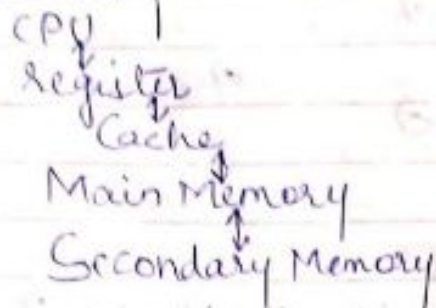 CPU
register
Cache
Main Memory
Secondary Memory